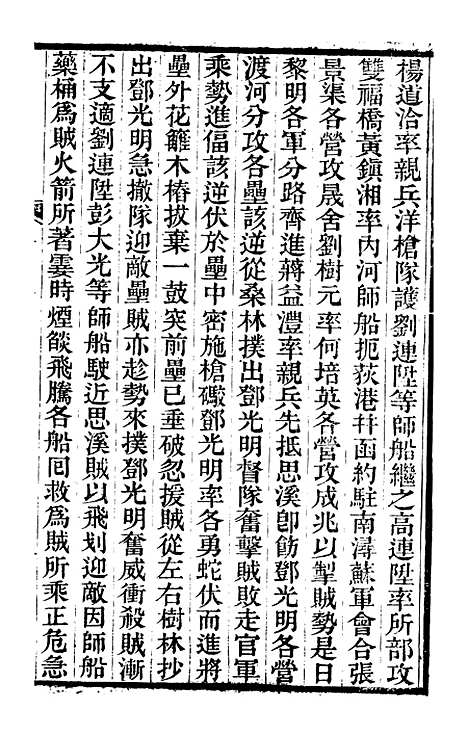 楊道洽率親兵洋槍隊護劉連陞等師船繼之高連陞率所部攻
雙福橋黃鎮湘率內河師船扼荻港幷函約駐南潯蘇軍會合張
景渠各營攻晟舍劉樹元率何培英各營攻成兆以掣賊勢是日
黎明各軍分路齊進蔣益澧率親兵先抵思溪卽飭鄧光明各營
渡河分攻各壘該逆從桑林撲出鄧光明督隊奮擊賊敗走官軍
乘勢進偪該逆伏於壘中密施槍礮鄧光明率各勇蛇伏而進將
壘外花籬木樁拔棄一鼓突前壘已垂破忽援賊從左右樹林抄
出鄧光明急撤隊迎敵壘賊亦趁勢來撲鄧光明奮威衝殺賊漸
不支適劉連陞彭大光等師船駛近思溪賊以飛划迎敵因師船
藥桶爲賊火箭所著霎時煙燄飛騰各船回救爲賊所乘正危急